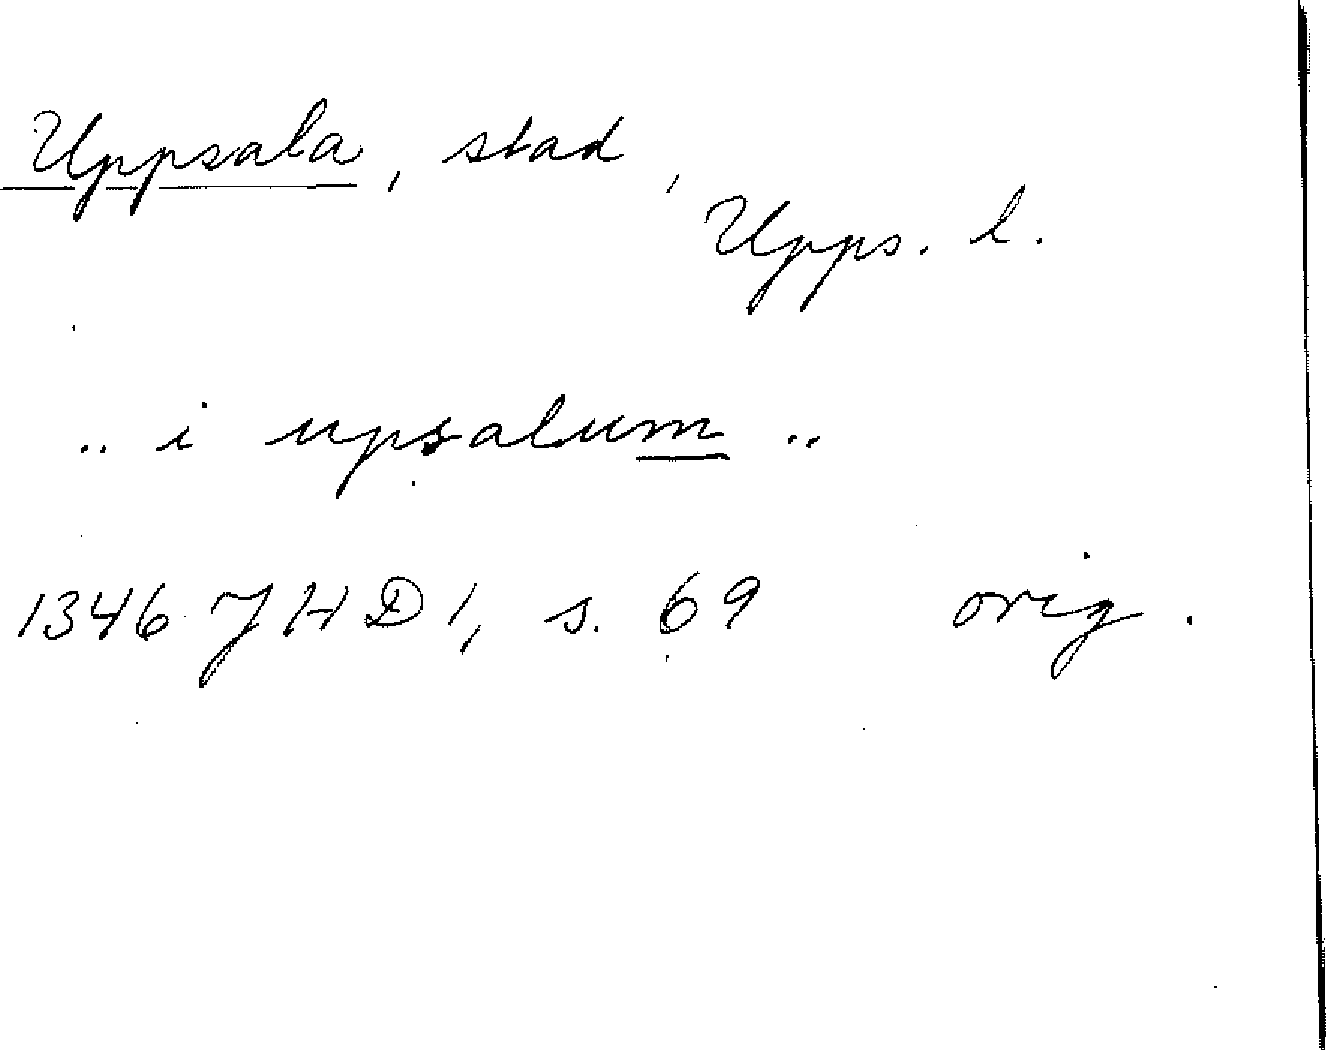 Uppsala, stad,
Upps. l.
.. i upsalum ..
1346 JHD 1, s. 69 orig.